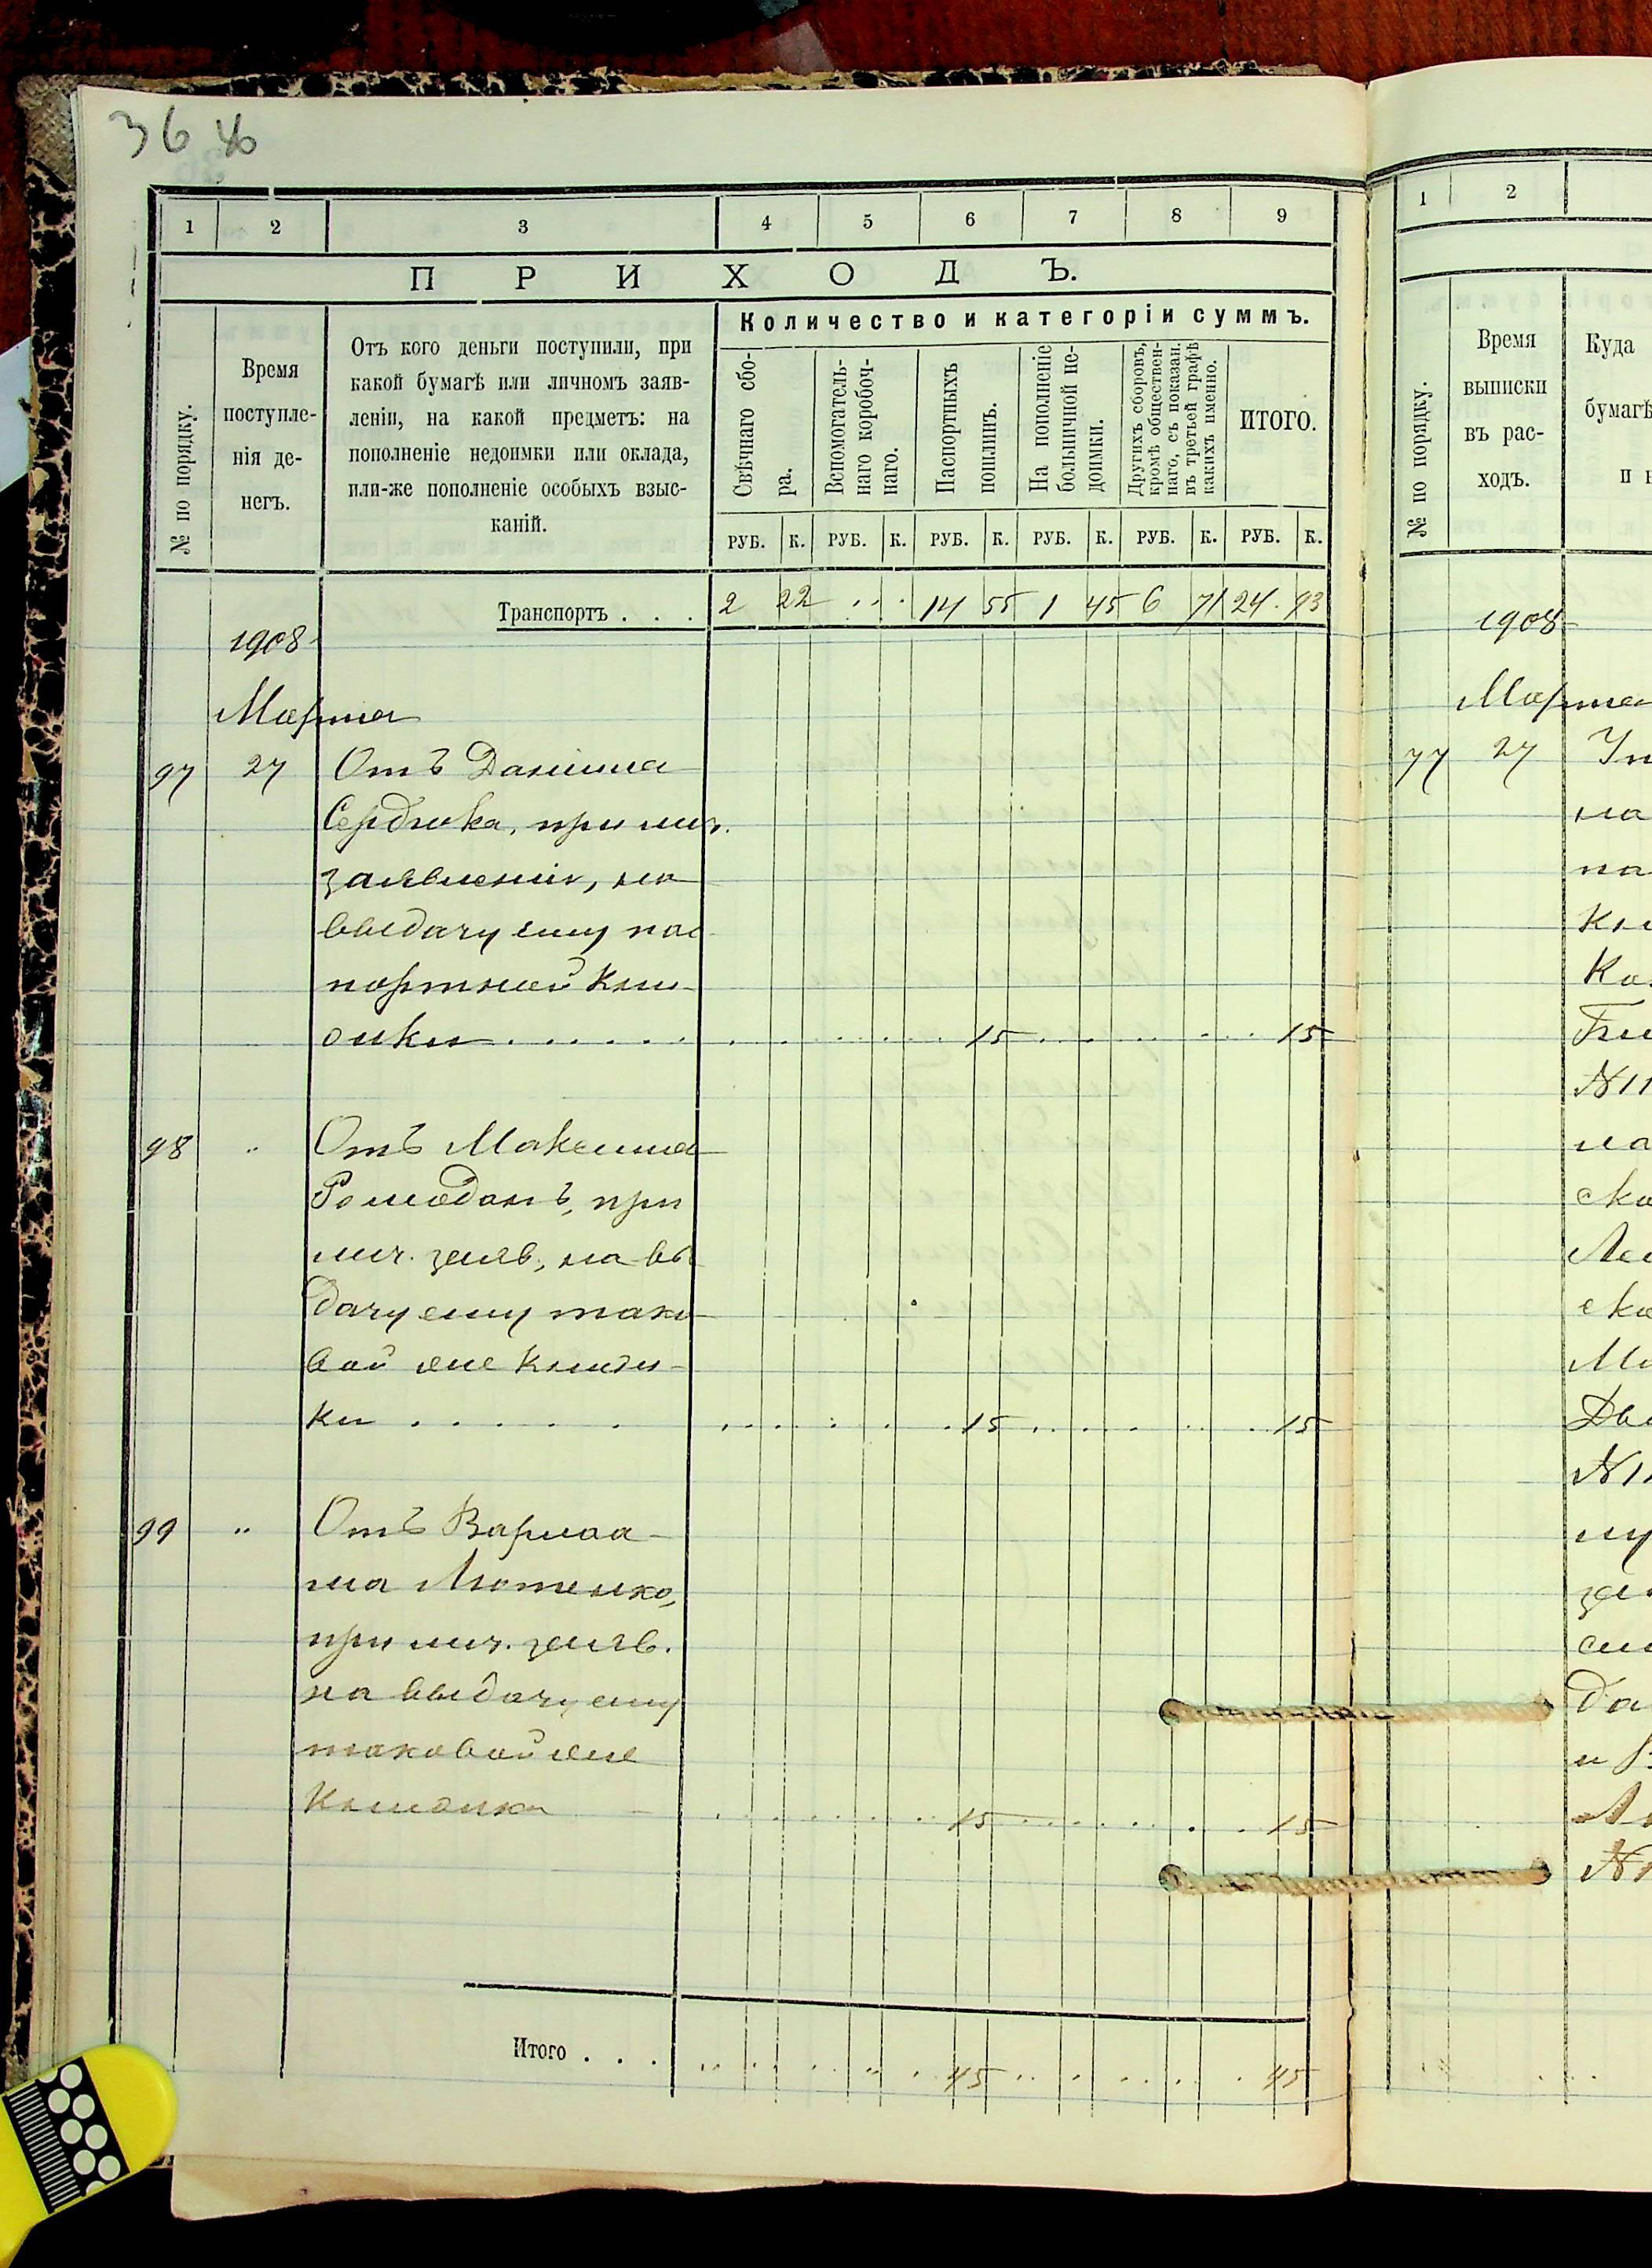 36 об
1 2 3 4 5 6 7 8 9
ПРИХОДЪ.
№ по порядку.
Время
поступле-
нія де-
негъ.
Отъ кого деньги поступили, при
какой бумагѣ или личномъ заяв-
леніи, на какой предметъ: на
пополненіе недоимки или оклада,
или-же пополненіе особыхъ взыс-
каній.
Количество и категоріи суммъ.
Свѣчнаго сбо-
ра.
Вспомогатель-
наго коробоч-
наго.
Паспортныхъ
пошлинъ.
На пополненіе
больничной не-
доимки.
Другихъ сборовъ,
кромѣ обществен-
наго, съ показан.
въ третьей графѣ
какихъ именно.
ИТОГО.
РУБ. К. РУБ. К. РУБ. К. РУБ. К. РУБ. К. РУБ. К.
Транспортъ . . . 2 22 . . . 14 55 1 45 6 71 24. 93
1908
Марта
97 27 Отъ Даніила
Сердюка, при лич.
заявленіи, на
выдачу ему пас
портной кни-
жки . . . . . 15 . . . . . 15
98 " Отъ Максима
Ромоданъ, при
лич. заяв., на вы
дачу ему тако
вой же книж-
ки . . . . . 15 . . . . . 15
99 " Отъ Варлаа-
ма Лютенко,
при лич. заяв.
на выдачу ему
таковой же
книжки . . . . . 15 . . . . . 15
Итого . . . 45 . . . . . 45
1 2
№ по порядку.
Время
выписки
въ рас-
ходъ.
Куда
бумагѣ
и н
1908
Марта
77 27
на
№ 11
ла
ско
ско
Дв
№ 11
му
да
и В
№ 1